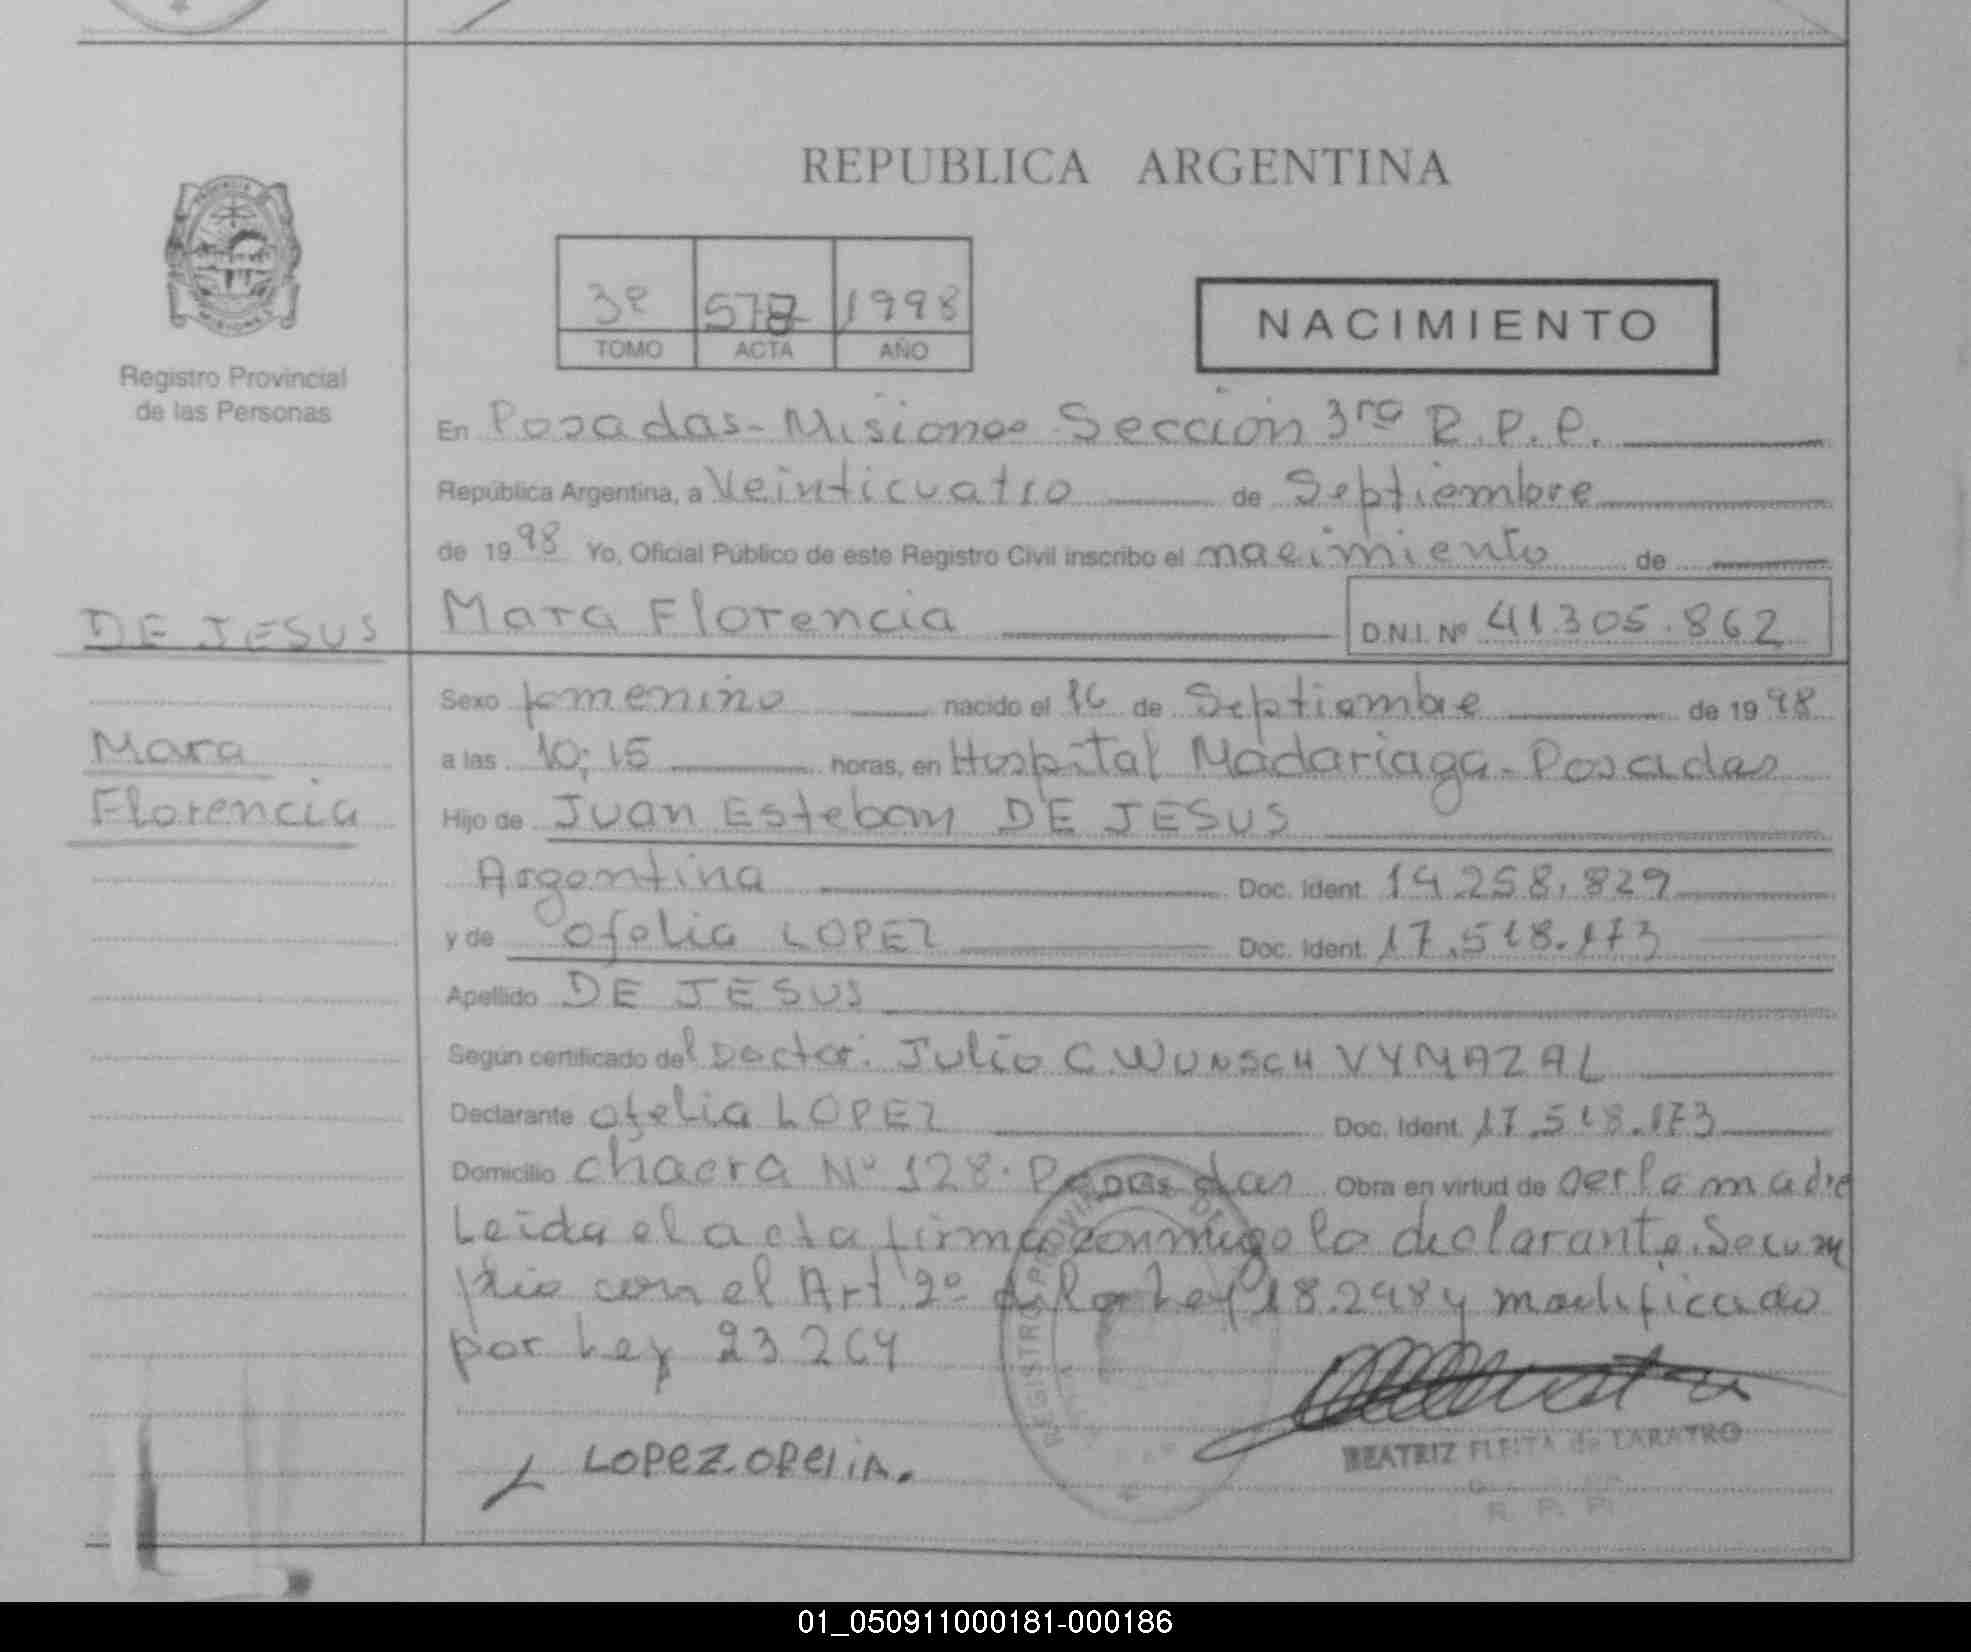 REPUBLICA ARGENTINA
3º 578 1998
TOMO ACTA AÑO
NACIMIENTO
Registro Provincial
de las Personas
En Posadas - Misiones Sección 3ra R.P.P.
República Argentina, a Veinticuatro de Septiembre
de 1998 Yo, Oficial Público de este Registro Civil inscribo el nacimiento de
DE JESUS
Mara Florencia D.N.I. Nº 41.305.862
Sexo femenino nacido el 16 de Septiembre de 1998
Mara
Florencia
a las 10:15 horas, en Hospital Madariaga - Posadas
Hijo de Juan Esteban DE JESUS
Argentina Doc. Ident. 14.258.829
y de Ofelia LOPEZ Doc. Ident. 17.518.173
Apellido DE JESUS
Según certificado del Doctor: Julio C. WUNSCH VYMAZAL
Declarante Ofelia LOPEZ Doc. Ident. 17.518.173
Domicilio Chacra Nº 128. Posadas Obra en virtud de ser la madre
Leída el acta firma conmigo la declarante. Se cum
plio con el Art. 2º de la Ley 18.248 y modificado
por Ley 23264
LOPEZ OFELIA.
BEATRIZ FLEITA de LARATRO
R. P. P.
01_050911000181-000186